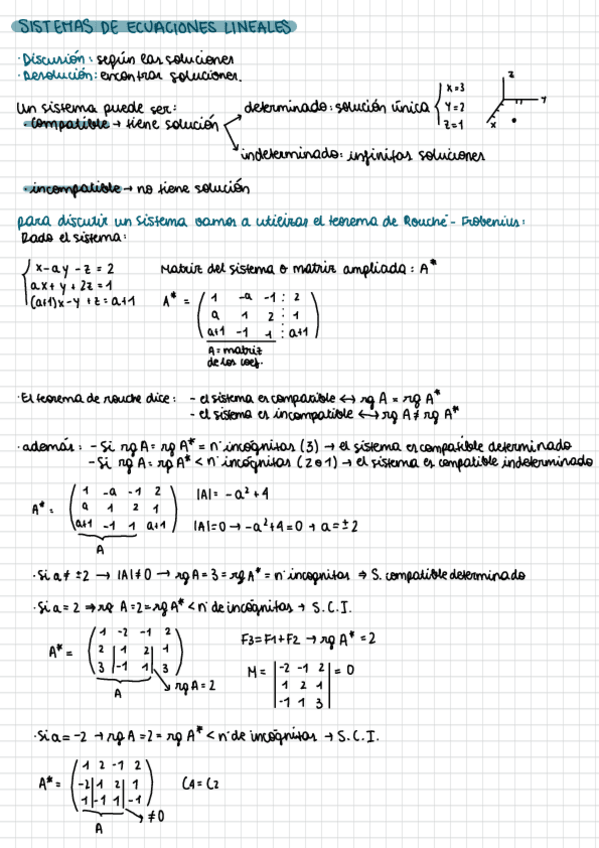 SISTEMAS DE ECUACIONES LINEALES
· Discusión: según las soluciones
· Resolución: encontrar soluciones.
Un sistema puede ser:
· compatible → tiene solución
determinado: solución única
x=3
y=2
z=1
z
y
x
indeterminado: infinitas soluciones
· incompatible → no tiene solución
para discutir un sistema vamos a utilizar el teorema de Rouché - Frobenius:
Dado el sistema:
x - ay - z = 2
ax + y + 2z = 1
(a+1)x - y + z = a+1
Matriz del sistema o matriz ampliada: A*
A* =
1 -a -1 : 2
a 1 2 : 1
a+1 -1 1 : a+1
A = matriz
de los coef.
· El teorema de rouche dice: - el sistema es compatible ↔ rg A = rg A*
- el sistema es incompatible ↔ rg A ≠ rg A*
· además: - Si rg A = rg A* = nº incógnitas (3) → el sistema es compatible determinado
- Si rg A = rg A* < nº incógnitas (2 o 1) → el sistema es compatible indeterminado
A* =
1 -a -1 2
a 1 2 1
a+1 -1 1 a+1
A
|A| = -a²+4
|A|=0 → -a²+4=0 → a=±2
· Si a ≠ ±2 → |A|≠0 → rg A = 3 = rg A* = nº incognitas ⇒ S. compatible determinado
· Si a = 2 ⇒ rg A = 2 = rg A* < nº de incógnitas → S.C.I.
A* =
1 -2 -1 2
2 1 2 1
3 -1 1 3
A
rg A = 2
F3 = F1 + F2 → rg A* = 2
M =
-2 -1 2
1 2 1
-1 1 3
= 0
· Si a = -2 → rg A = 2 = rg A* < nº de incógnitas → S.C.I.
A* =
1 2 -1 2
-2 1 2 1
1 -1 1 -1
A
≠0
C4 = C2